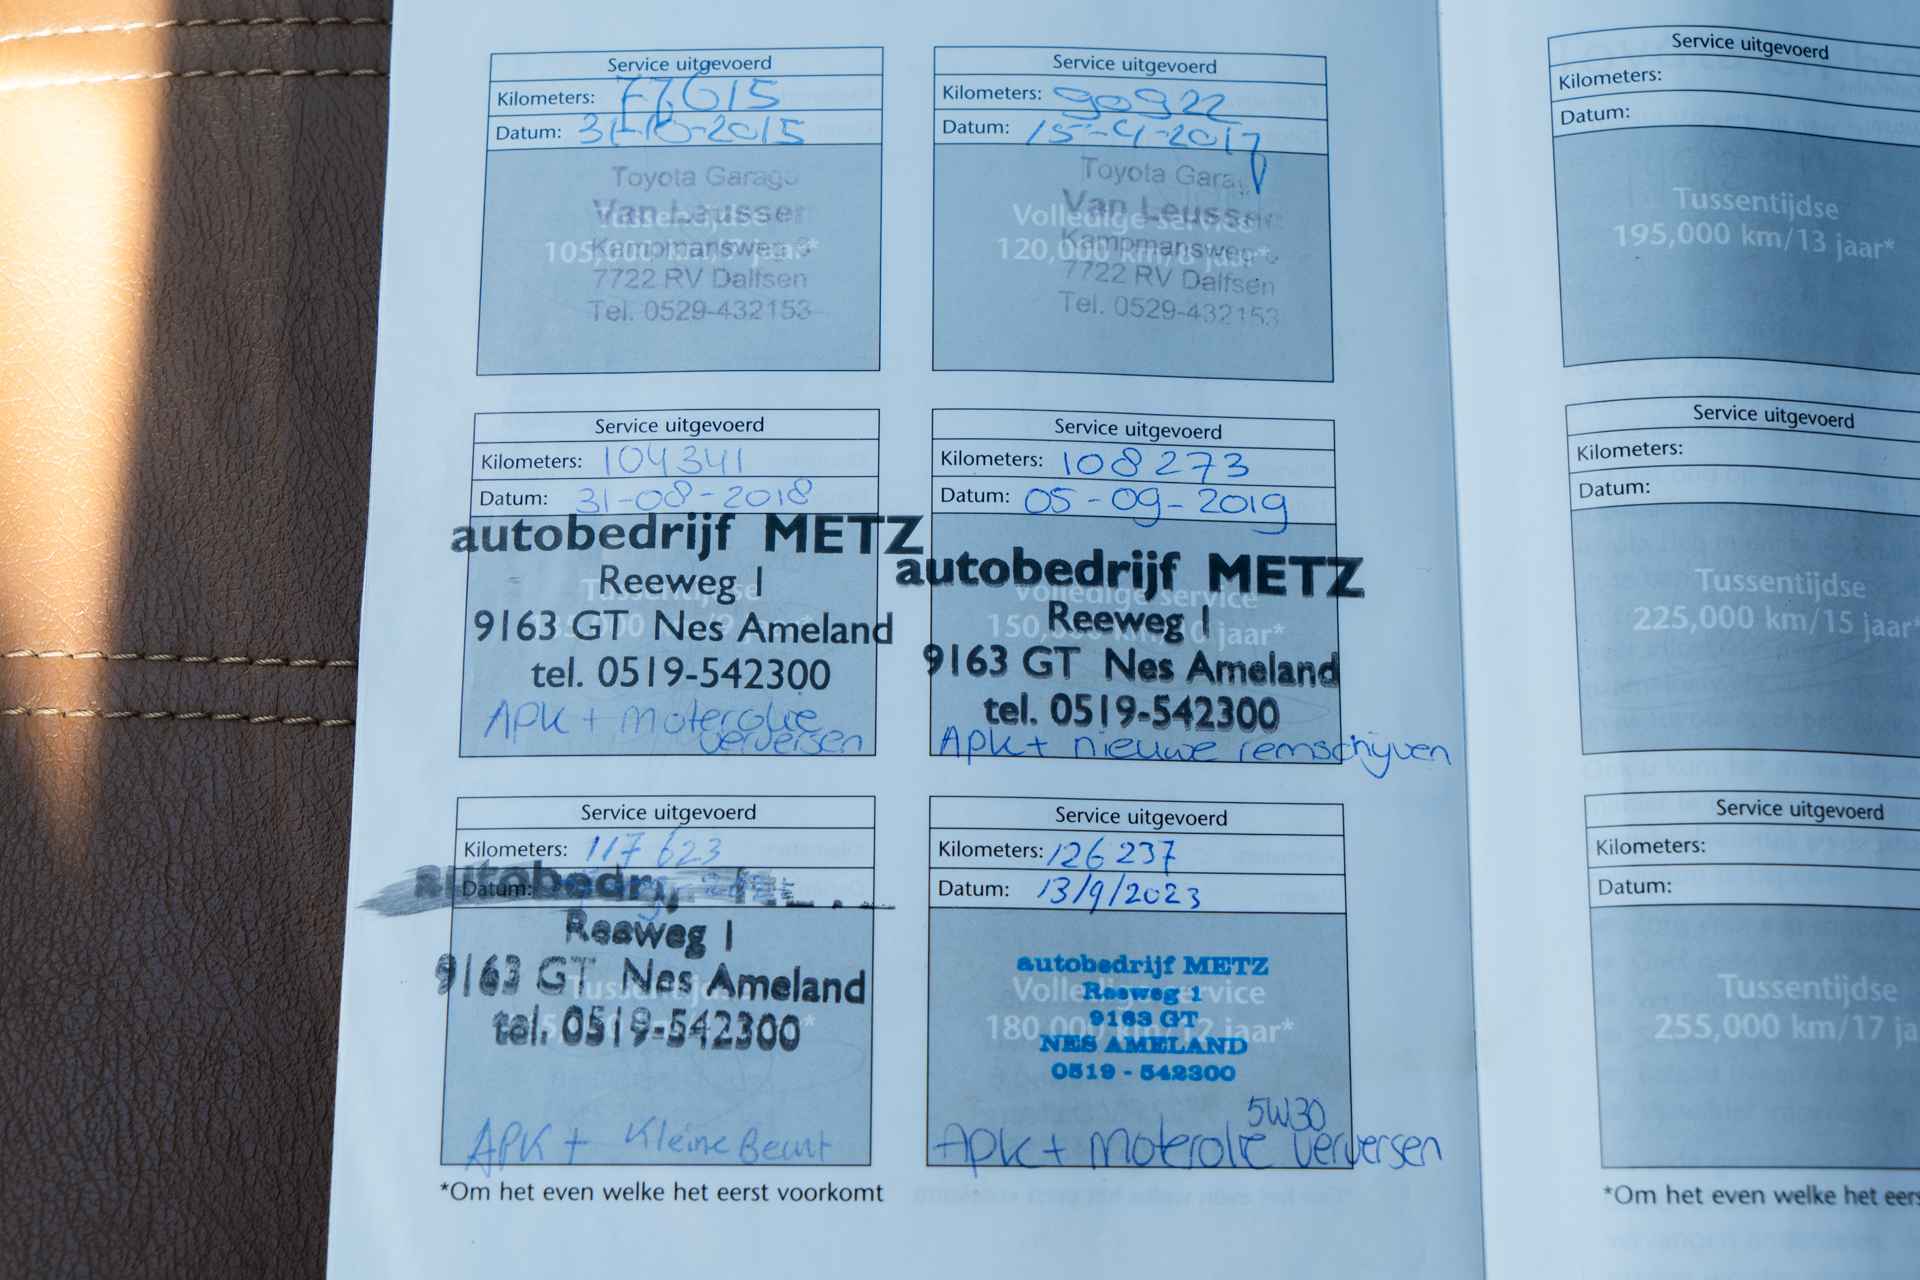 Service uitgevoerd
Kilometers: 77615
Datum: 31-10-2015
Toyota Garage
Van Leussen
Tussentijdse
Kampmansweg
105,000 km/7 jaar*
7722 RV Dalfsen
Tel. 0529-432153
Service uitgevoerd
Kilometers: 90922
Datum: 15-4-2017
Toyota Garage
Van Leussen
Volledige service
Kampmansweg
120,000 km/8 jaar*
7722 RV Dalfsen
Tel. 0529-432153
Service uitgevoerd
Kilometers: 104341
Datum: 31-08-2018
autobedrijf METZ
Reeweg 1
Tussentijdse
9163 GT Nes Ameland
000 km/9 jaar*
tel. 0519-542300
APK + moterolie
verversen
Service uitgevoerd
Kilometers: 108273
Datum: 05-09-2019
autobedrijf METZ
Volledige service
Reeweg 1
150,000 km/10 jaar*
9163 GT Nes Ameland
tel. 0519-542300
APK + nieuwe remschijven
Service uitgevoerd
Kilometers: 117623
Datum:
autobedrijf
Reeweg 1
9163 GT Nes Ameland
Tussentijdse
tel. 0519-542300
APK + Kleine Beurt
Service uitgevoerd
Kilometers: 126237
Datum: 13/9/2023
autobedrijf METZ
Volledige service
Reeweg 1
9163 GT
180,000 km/12 jaar*
NES AMELAND
0519 - 542300
5W30
APK + moterolie verversen
*Om het even welke het eerst voorkomt
Service uitgevoerd
Kilometers:
Datum:
Tussentijdse
195,000 km/13 jaar*
Service uitgevoerd
Kilometers:
Datum:
Tussentijdse
225,000 km/15 jaar*
Service uitgevoerd
Kilometers:
Datum:
Tussentijdse
255,000 km/17 ja
*Om het even welke het eers